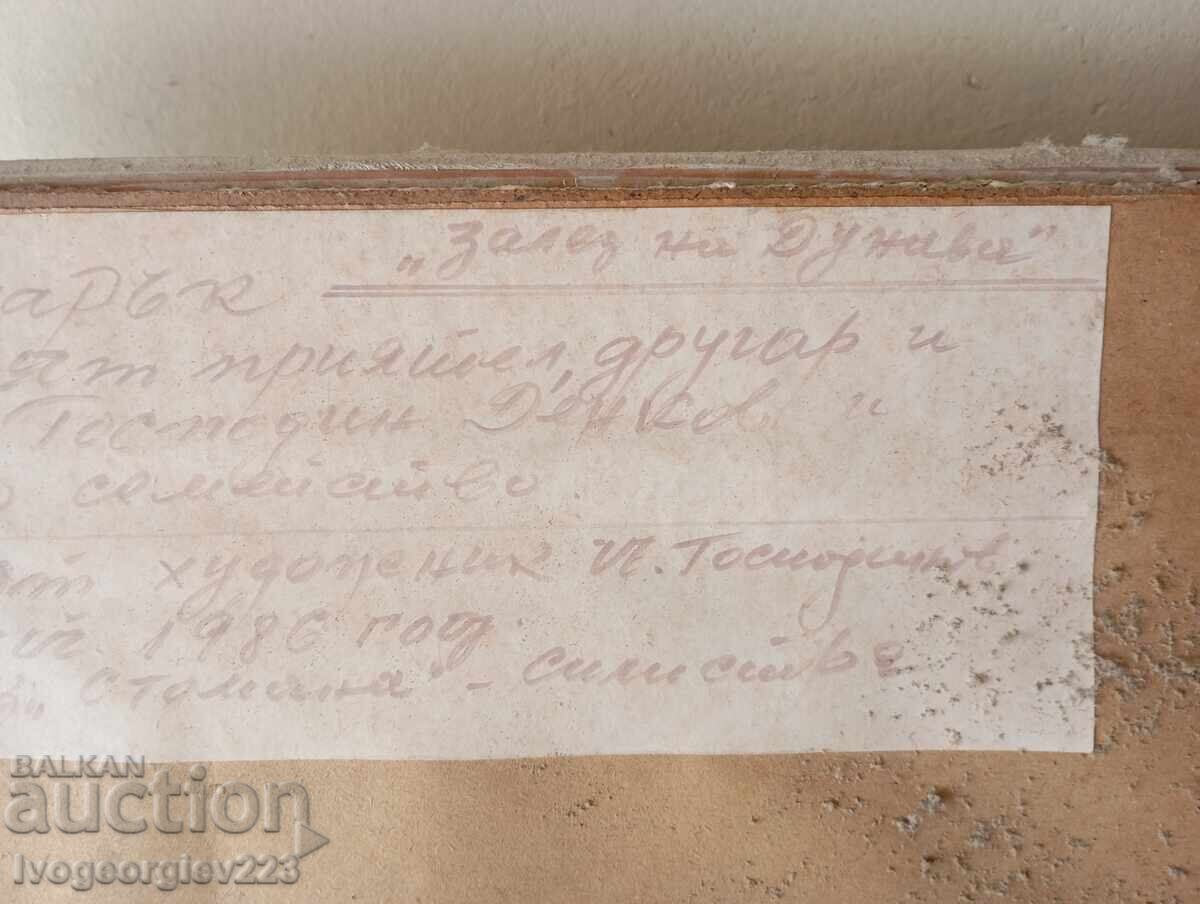 „Залез на Дунава"
арък
ят приятел, другар и
Господин Денков и
о семейство
от художник П. Господинов
1986 год
„Стомана" - Силистра
BALKAN
auction
Ivogeorgiev223